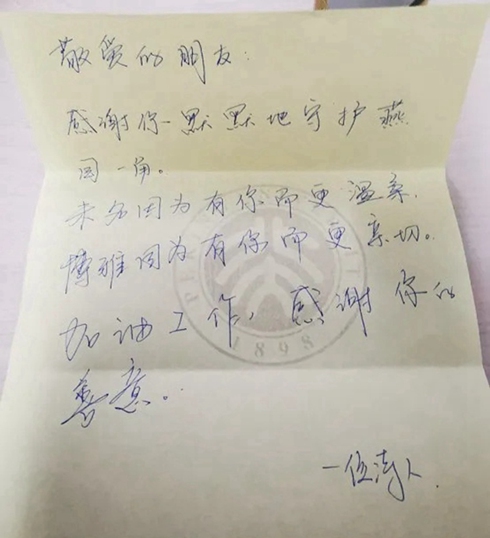 敬爱的朋友:
感谢你默默地守护燕
园一角。
未名因为有你而更温柔.
博雅因为有你而更亲切。
加油工作,感谢你的
善意。
一位燕人.
1898